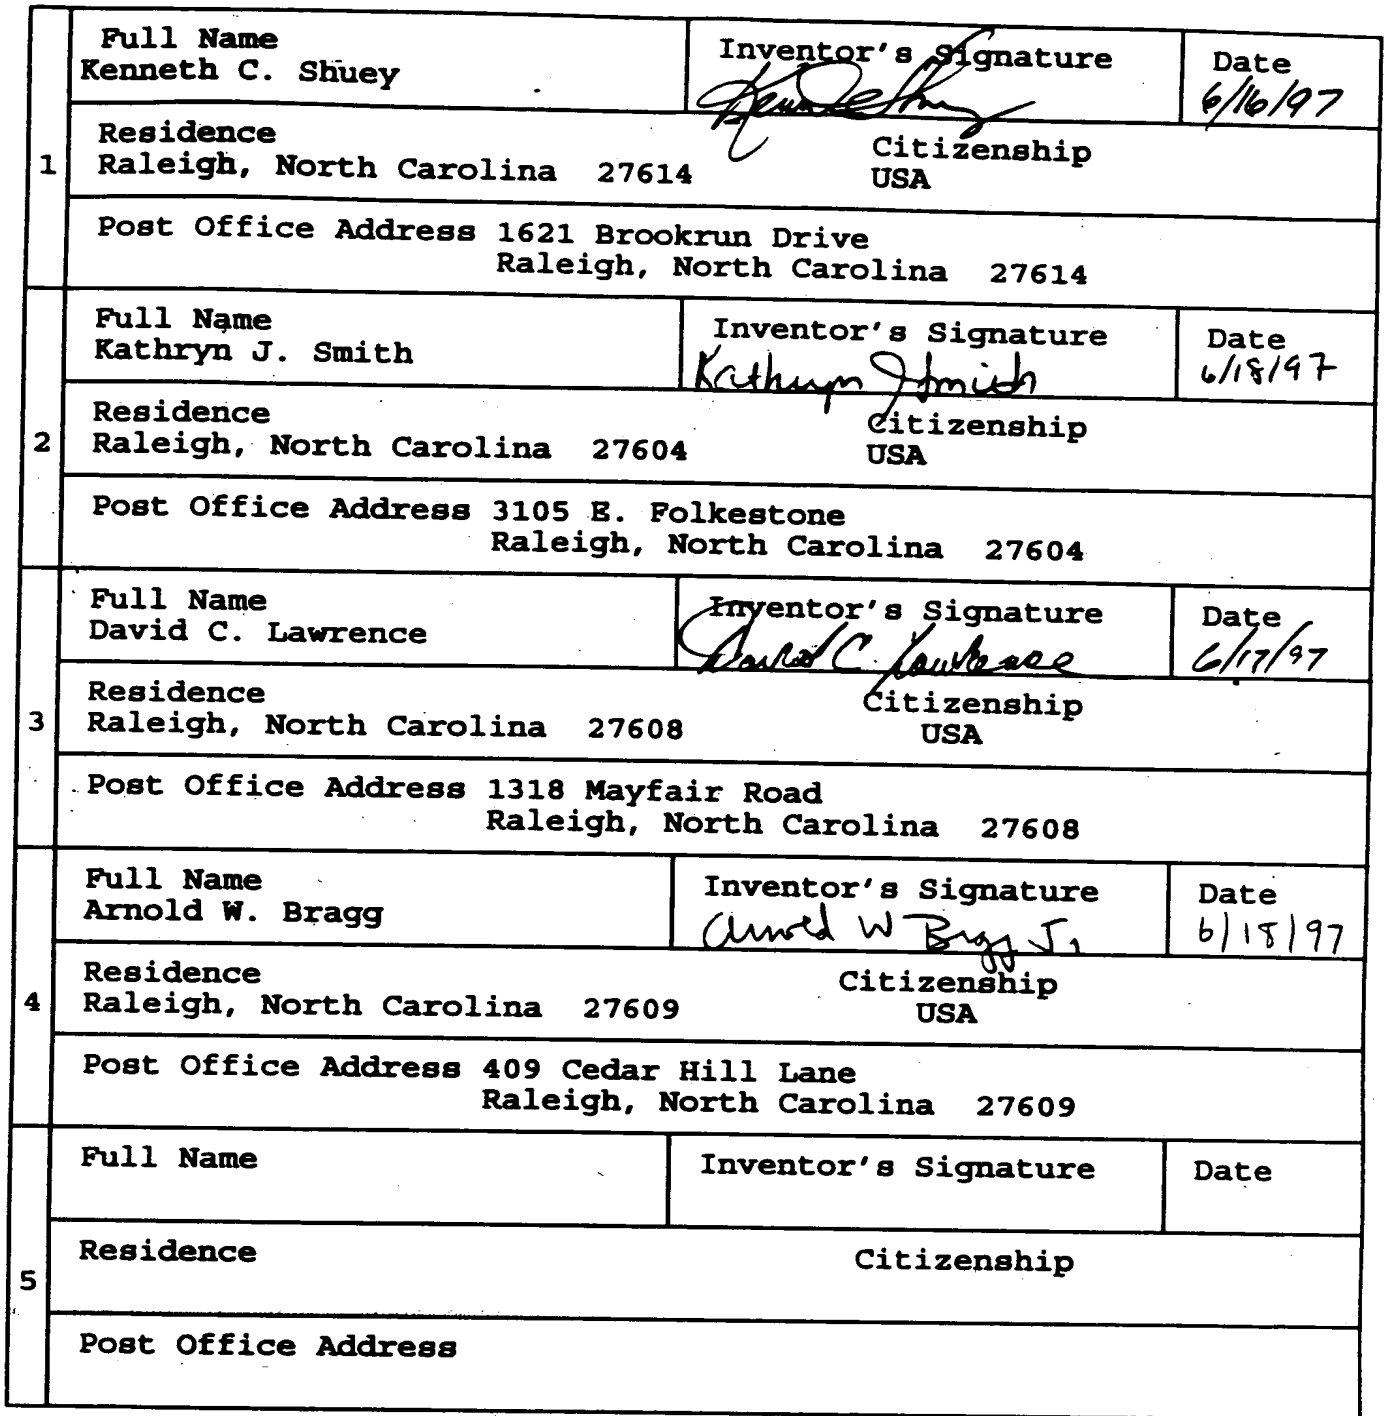 Full Name
Kenneth C. Shuey
Inventor's Signature
Date
6/16/97
1
Residence
Raleigh, North Carolina 27614
Citizenship
USA
Post Office Address 1621 Brookrun Drive
Raleigh, North Carolina 27614
Full Name
Kathryn J. Smith
Inventor's Signature
Kathryn J Smith
Date
6/18/97
2
Residence
Raleigh, North Carolina 27604
Citizenship
USA
Post Office Address 3105 E. Folkestone
Raleigh, North Carolina 27604
Full Name
David C. Lawrence
Inventor's Signature
David C. Lawrence
Date
6/17/97
3
Residence
Raleigh, North Carolina 27608
Citizenship
USA
Post Office Address 1318 Mayfair Road
Raleigh, North Carolina 27608
Full Name
Arnold W. Bragg
Inventor's Signature
Arnold W Bragg Jr
Date
6/18/97
4
Residence
Raleigh, North Carolina 27609
Citizenship
USA
Post Office Address 409 Cedar Hill Lane
Raleigh, North Carolina 27609
Full Name
Inventor's Signature
Date
5
Residence
Citizenship
Post Office Address